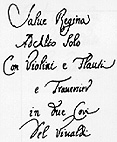 Salve Regina
Ad Alto Solo
Con Violini e Flauti
e Traversier
in due Cori
Del Vivaldi